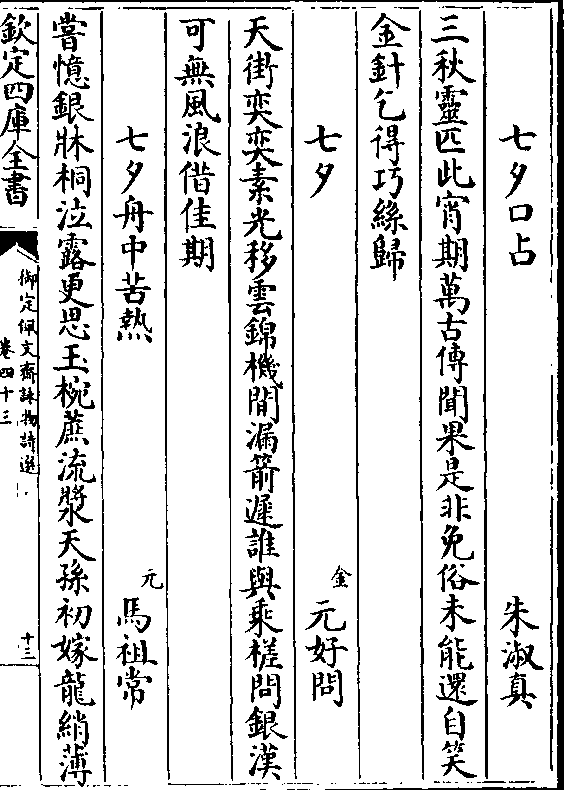 七夕口占　朱淑真
三秋靈匹此宵期萬古傳聞果是非免俗未能還自笑
金針乞得巧絲歸
七夕　金　元好問
天街奕奕素光移雲錦機閒漏箭遲誰與乘槎問銀漢
可無風浪借佳期
七夕舟中苦熱　元　馬祖常
嘗憶銀牀桐泣露更思玉椀蔗流漿天孫初嫁龍綃薄
欽定四庫全書
御定佩文齋詠物詩選
卷四十三
十三